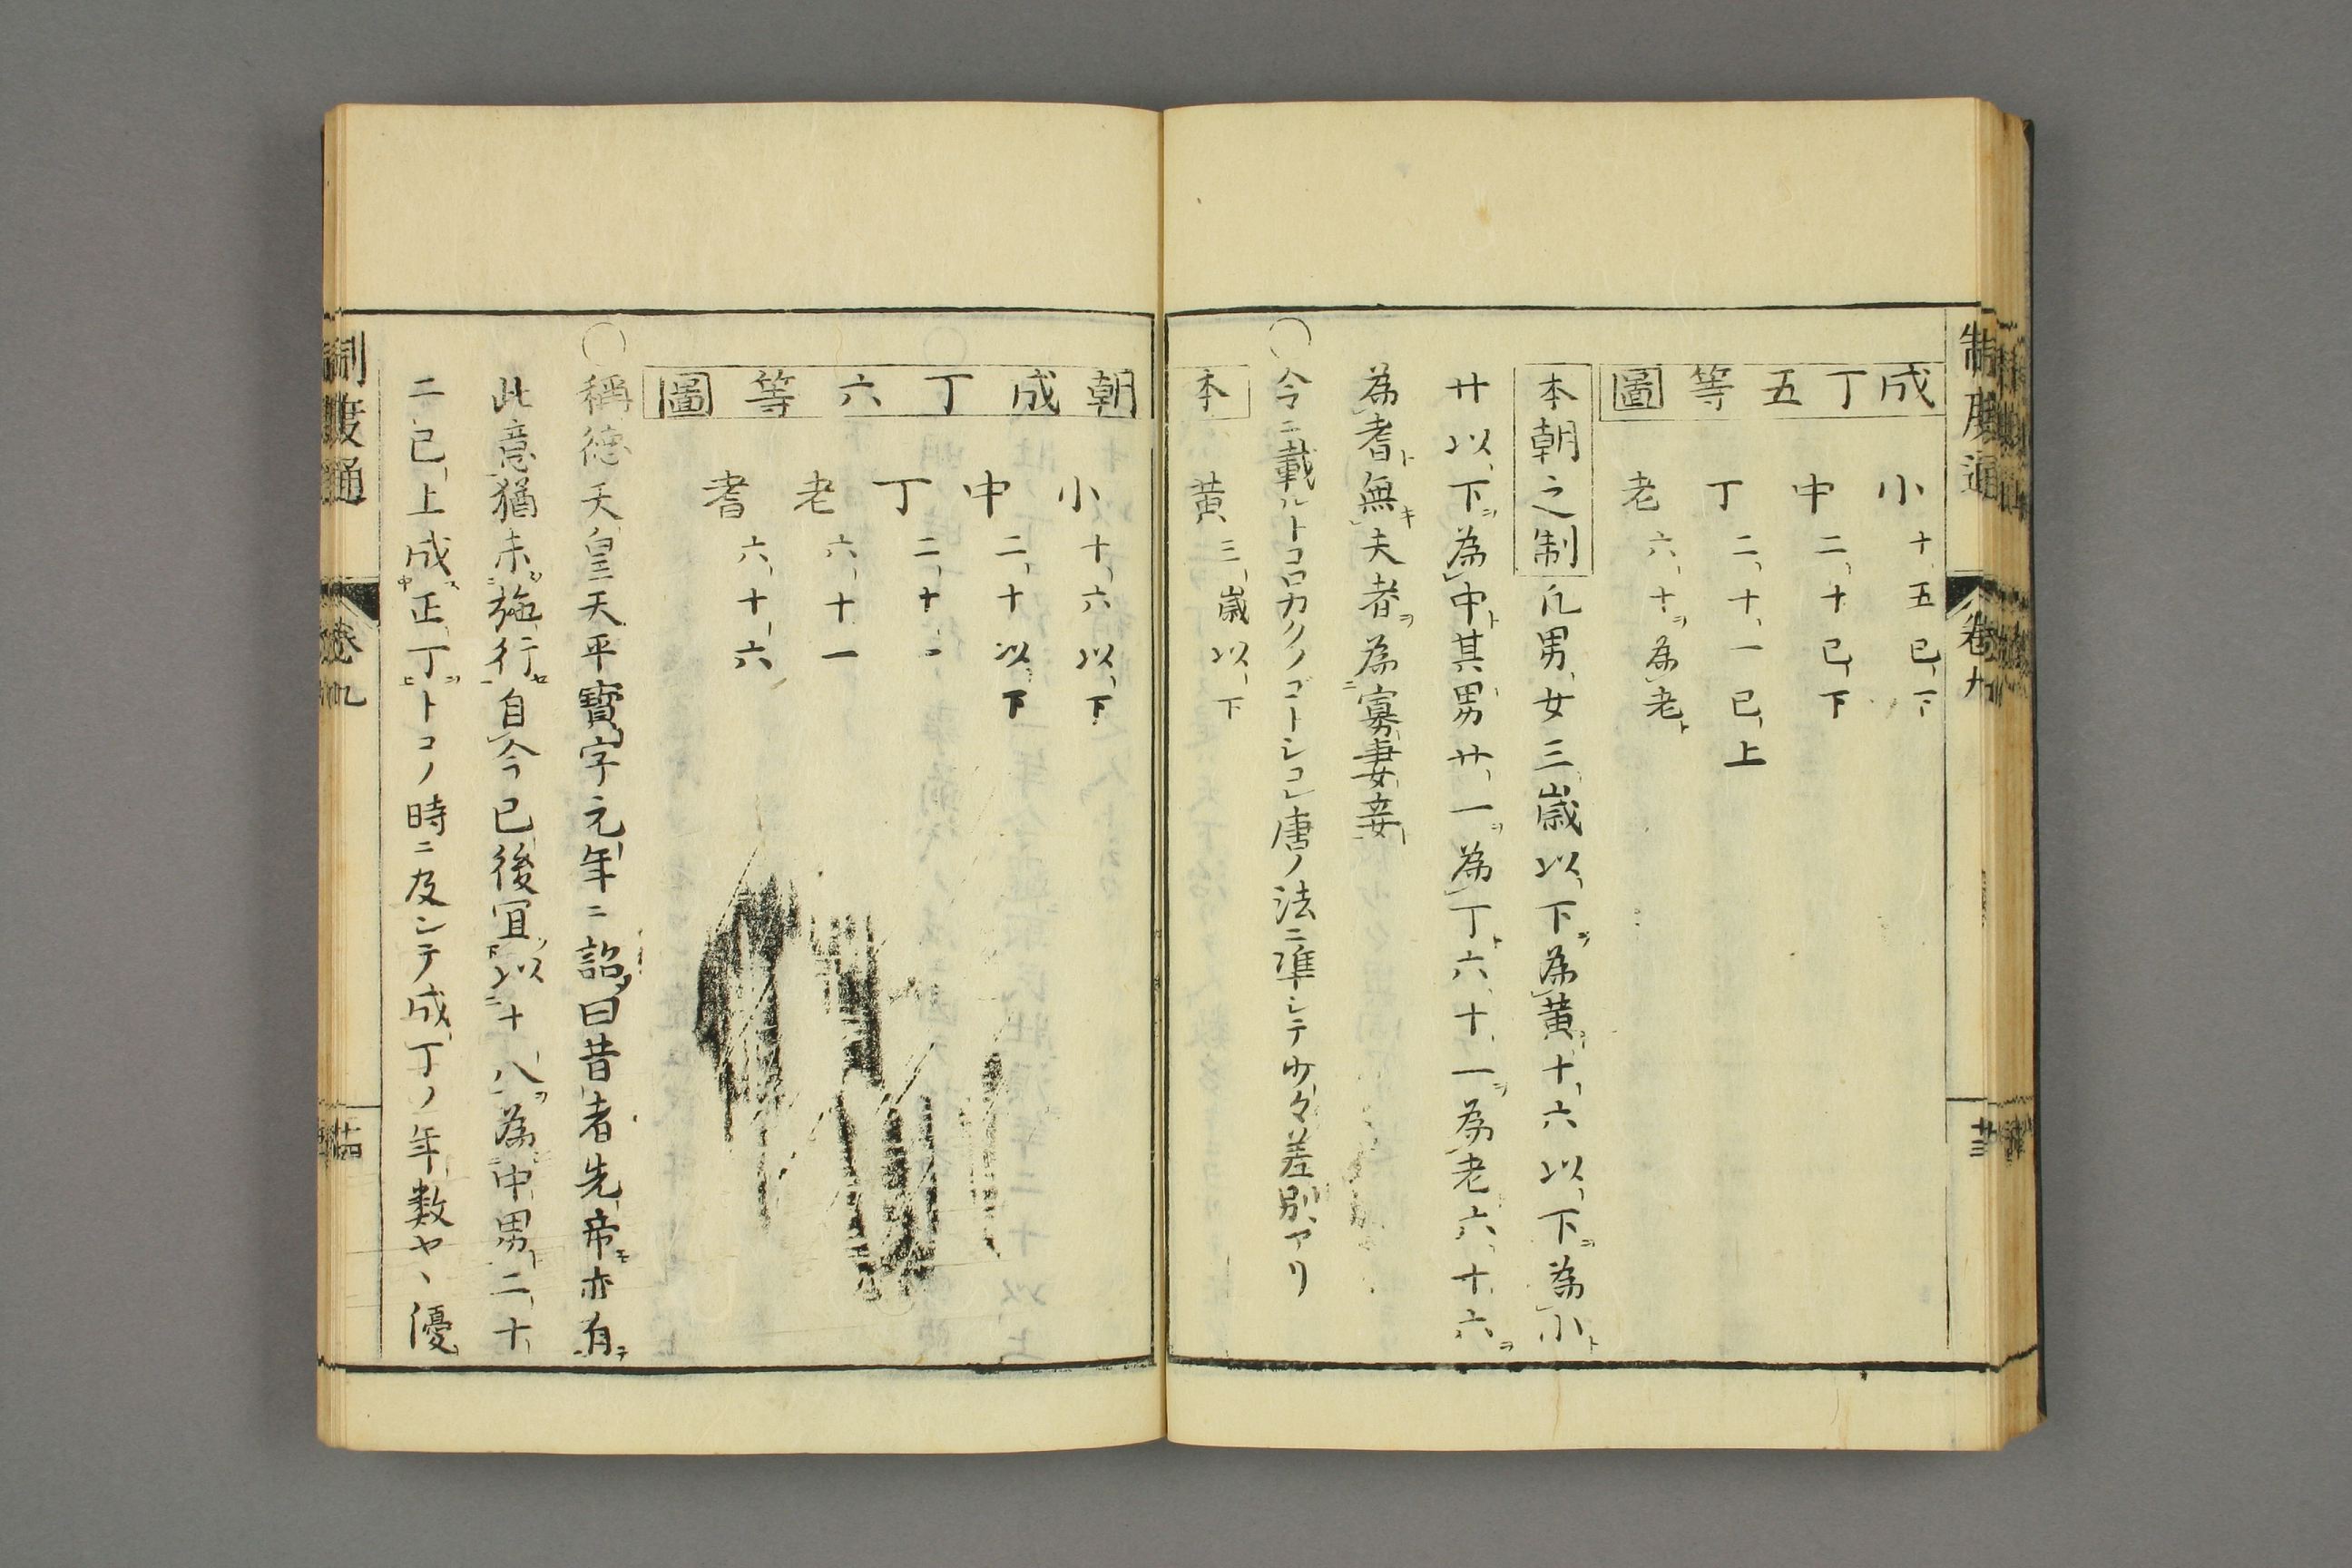 制度通 卷九 廿三
成丁五等圖
小 十五已下
中 二十已下
丁 二十一已上
老 六十ヲ為老ト
本朝之制 凡男女三歳以下ヲ為黄ト十六以下ヲ為小ト
廿以下ヲ為中ト其男廿一ヲ為丁ト六十一ヲ為老六十六ヲ
為耆ト無キ夫者ヲ為寡妻妾ト
○令ニ載ルトコロカクノゴトシコレ唐ノ法ニ準シテ少々差別アリ
本
黄 三歳以下
朝成丁六等圖
小 十六以下
中 二十以下
丁 二十一
老 六十一
耆 六十六
○稱德天皇天平寶字元年ニ詔曰昔者先帝モ亦有テ
此意猶未施行セ自今已後宜以十八ヲ為中男ト二十
二已上成正丁ヲトコノ時ニ及シテ成丁ノ年数ヤヽ優
制度通 卷九 廿四